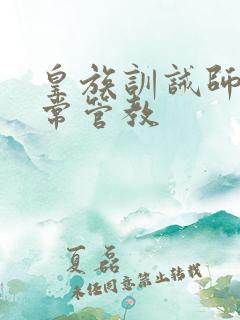 皇族訓誡師
常管教
夏磊
未經同意禁止轉載